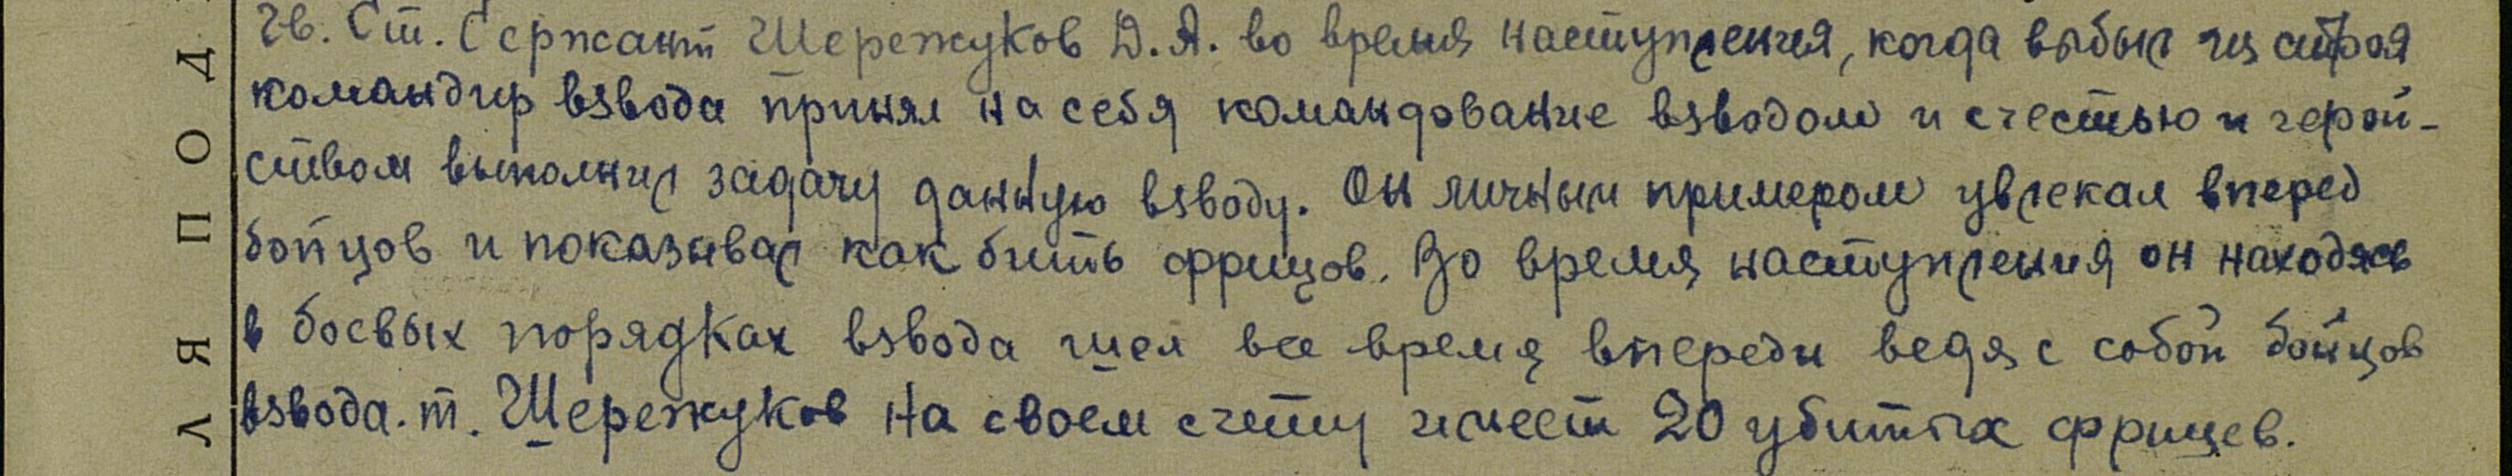 Гв. Ст. Сержант Шережуков Д.А. во время наступления, когда выбыл из строя
командир взвода принял на себя командование взводом и с честью и герой-
ством выполнил задачу данную взводу. Он личным примером увлекал вперед
бойцов и показывал как бить фрицов. Во время наступления он находясь
в боевых порядках взвода шел все время впереди ведя с собой бойцов
взвода. т. Шережуков на своем счету имеет 20 убитых фрицев.
ЛЯ ПОД